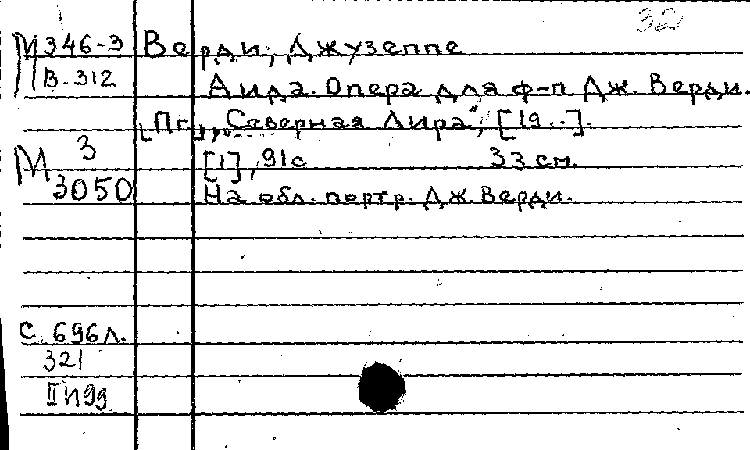 32
М346-3 Верди, Джузеппе
В-312
Аида. Опера для ф-п Дж. Верди.
[Пг.], „Северная Лира", [19..].
М 3 [1], 91с 33 см.
3050 На обл. портр. Дж. Верди.
С. 696л.
321